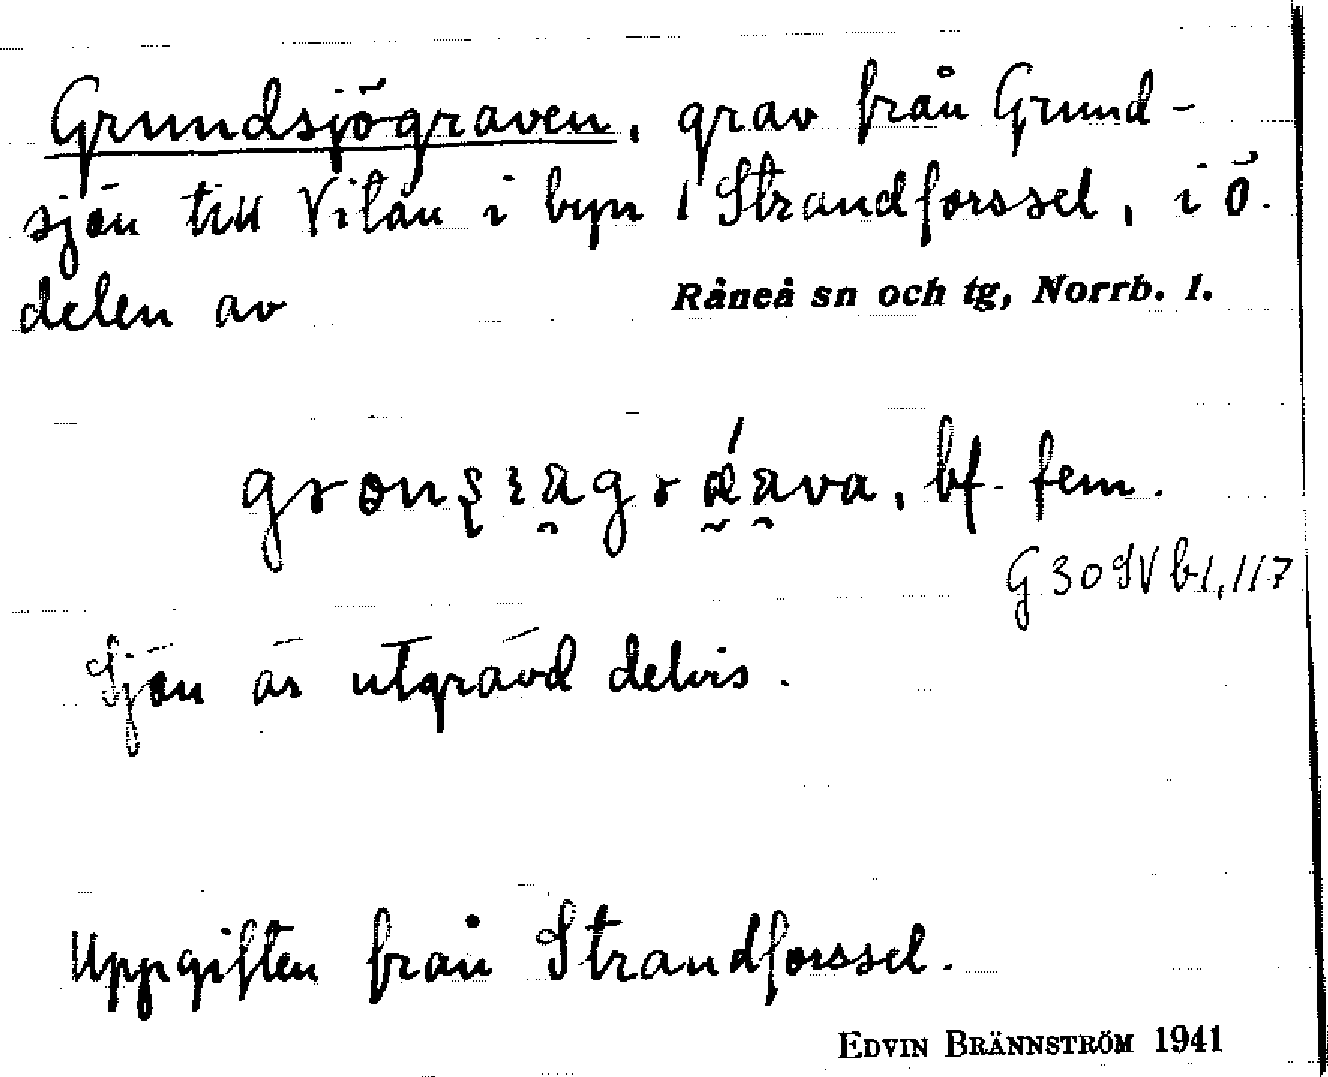 Grundsjögraven, grav från Grund-
sjön till Vitån i byn i Strandforssel, i ö.
delen av Råneå sn och tg, Norrb. l.
bf. fem.
G 30 SV b1, 117
Sjön är utgrävd delvis.
Uppgiften från Strandforssel.
EDVIN BRÄNNSTRÖM 1941